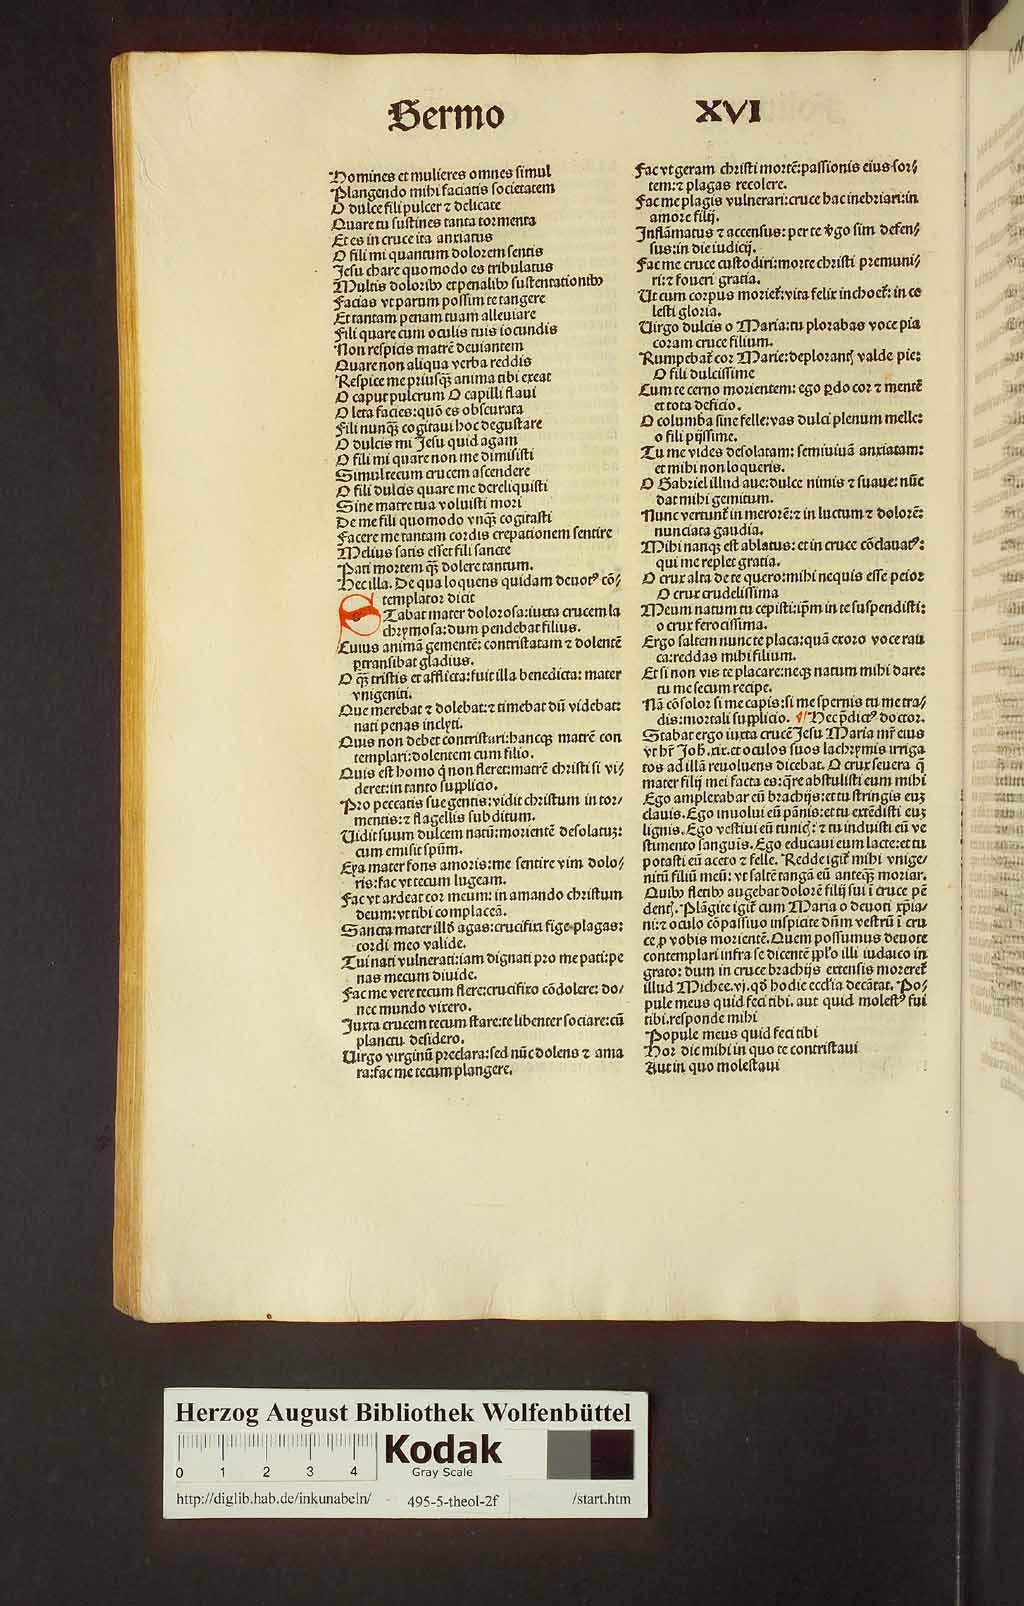 Sermo XVI
Homines et mulieres omnes simul
Plangendo mihi faciatis societatem
O dulce fili pulcer ⁊ delicate
Quare tu sustines tanta tormenta
Et es in cruce ita anxiatus
O fili mi quantum dolorem sentis
Jesu chare quomodo es tribulatus
Multis doloribꝰ et penalibꝰ sustentationibꝰ
Facias vt parum possim te tangere
Et tantam penam tuam alleuiare
Fili quare cum oculis tuis iocundis
Non respicis matrē deuiantem
Quare non aliqua verba reddis
Respice me priusqꝫ anima tibi exeat
O caput pulcrum O capilli flaui
O leta facies: quō es obscurata
Fili nunqꝫ cogitaui hoc degustare
O dulcis mi Jesu quid agam
O fili mi quare non me dimisisti
Simul tecum crucem ascendere
O fili dulcis quare me dereliquisti
Sine matre tua voluisti mori
De me fili quomodo vnqꝫ cogitasti
Facere me tantam cordis crepationem sentire
Melius satis esset fili sancte
Pati mortem qꝫ dolere tantum.
Hec illa. De qua loquens quidam deuotꝰ cō/
templator dicit
STabat mater dolorosa: iuxta crucem la
chrymosa: dum pendebat filius.
Cuius animā gementē: contristatam ⁊ dolentē
ꝑtransibat gladius.
O qꝫ tristis et afflicta: fuit illa benedicta: mater
vnigeniti.
Que merebat ⁊ dolebat: ⁊ timebat dū videbat:
nati penas inclyti.
Quis non debet contristari: hancqꝫ matrē con
templari: dolentem cum filio.
Quis est homo q̇ non fleret: matrē christi si vi/
deret: in tanto supplicio.
Pro peccatis sue gentis: vidit christum in tor/
mentis: ⁊ flagellis subditum.
Vidit suum dulcem natū: morientē desolatuꝫ:
cum emisit spūm.
Eya mater fons amoris: me sentire vim dolo/
ris: fac vt tecum lugeam.
Fac vt ardeat cor meum: in amando christum
deum: vt tibi complaceā.
Sancta mater illd̓ agas: crucifixi fige plagas:
cordi meo valide.
Tui nati vulnerati: iam dignati pro me pati: pe
nas mecum diuide.
Fac me vere tecum flere: crucifixo cōdolere: do/
nec mundo vixero.
Juxta crucem tecum stare: te libenter sociare: cū
planctu desidero.
Virgo virginū preclara: sed nūc dolens ⁊ ama
ra: fac me tecum plangere.
Fac vt geram christi mortē: passionis eius sor/
tem: ⁊ plagas recolere.
Fac me plagis vulnerari: cruce hac inebriari: in
amore filij.
Inflāmatus ⁊ accensus: per te v̓go sim defen/
sus: in die iudicij.
Fac me cruce custodiri: morte christi premuni/
ri: ⁊ foueri gratia.
Ut cum corpus morieṫ: vita felix inchoeṫ: in ce
lesti gloria.
Virgo dulcis o Maria: tu plorabas voce pia
coram cruce filium.
Rumpebaṫ cor Marie: deplorantꝭ valde pie:
O fili dulcissime
Cum te cerno morientem: ego ꝑdo cor ⁊ mentē
et tota deficio.
O columba sine felle: vas dulci plenum melle:
o fili pijssime.
Tu me vides desolatam: semiuiuā anxiatam:
et mihi non loqueris.
O Gabriel illud aue: dulce nimis ⁊ suaue: nūc
dat mihi gemitum.
Nunc vertunṫ in merorē: ⁊ in luctum ⁊ dolorē:
nunciata gaudia.
Mihi nanqꝫ est ablatus: et in cruce cōclauatꝰ:
qui me replet gratia.
O crux alta de te quero: mihi nequis esse peior
O crux crudelissima
Meum natum tu cepisti: ip̄m in te suspendisti:
o crux ferocissima.
Ergo saltem nunc te placa: quā exoro voce rau
ca: reddas mihi filium.
Et si non vis te placare: neqꝫ natum mihi dare:
tu me secum recipe.
Nā cōsolor si me capis: si me spernis tu me tra/
dis: mortali supplicio. ¶ Hec p̄dictꝰ doctor.
Stabat ergo iuxta crucē Jesu Maria mr̄ eius
vt hr̄ Joh̄. xix. et oculos suos lachrymis irriga
tos ad illā reuoluens dicebat. O crux seuera q̄
mater filij mei facta es: q̄re abstulisti eum mihi
Ego amplexabar eū brachijs: et tu stringis euꝫ
clauis. Ego inuolui eū pānis: et tu extēdisti euꝫ
lignis. Ego vestiui eū tunicꝭ: ⁊ tu induisti eū ve
stimento sanguis. Ego educaui eum lacte: et tu
potasti eū aceto ⁊ felle. Redde igiṫ mihi vnige/
nitū filiū meū: vt saltē tangā eū anteqꝫ moriar.
Quibꝰ fletibꝰ augebat dolorē filij sui ī cruce pē
dentꝭ. Plāgite igiṫ cum Maria o deuoti xp̄ia/
ni: ⁊ oculo cōpassiuo inspicite dn̄m vestrū ī cru
ce ꝓ vobis morientē. Quem possumus deuote
contemplari infra se dicentē pp̄lo illi iudaico in
grato: dum in cruce brachijs extensis moreretˀ
illud Michee. vj. qd̓ hodie eccl̓ia decātat. Po/
pule meus quid feci tibi. aut quid molestꝰ fui
tibi. responde mihi
Popule meus quid feci tibi
Hor dic mihi in quo te contristaui
Aut in quo molestaui
Herzog August Bibliothek Wolfenbüttel
0 1 2 3 4
Kodak
Gray Scale
http://diglib.hab.de/inkunabeln/ 495-5-theol-2f /start.htm